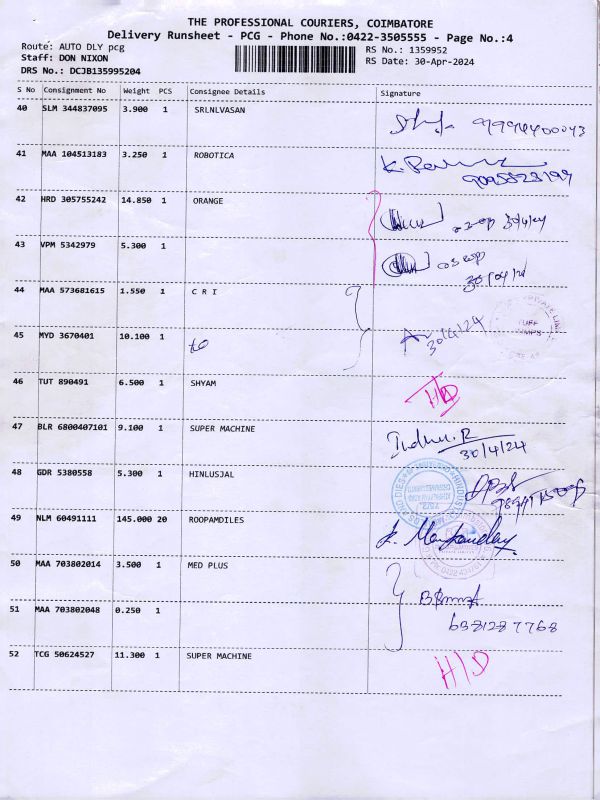 THE PROFESSIONAL COURIERS, COIMBATORE
Delivery Runsheet - PCG - Phone No.:0422-3505555 - Page No.:4
Route: AUTO DLY pcg
RS No.: 1359952
Staff: DON NIXON
RS Date: 30-Apr-2024
DRS No.: DCJB135995204
S No Consignment No Weight PCS Consignee Details Signature
40 SLM 344837095 3.900 1 SRLNLVASAN
41 MAA 104513183 3.250 1 ROBOTICA
42 HRD 305755242 14.850 1 ORANGE 30/4/24
43 VPM 5342979 5.300 1
44 MAA 573681615 1.550 1 C R I
45 MYD 3670401 10.100 1 30/4/24
46 TUT 890491 6.500 1 SHYAM H/D
47 BLR 6800407101 9.100 1 SUPER MACHINE
30/4/24
48 GDR 5380558 5.300 1 HINLUSJAL
49 NLM 60491111 145.000 20 ROOPAMDILES
50 MAA 703802014 3.500 1 MED PLUS
51 MAA 703802048 0.250 1
52 TCG 50624527 11.300 1 SUPER MACHINE H/D